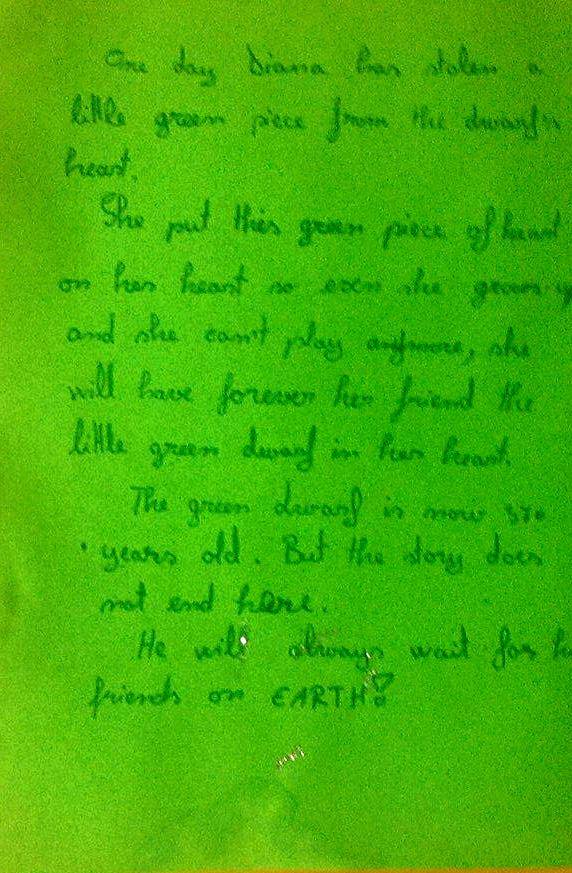 One day Diana has stolen a
little green piece from the dwarf's
heart.
She put this green piece of heart
on her heart so even she grows
and she can't play anymore, she
will have forever her friend the
little green dwarf in her heart.
The green dwarf is now 370
years old. But the story does
not end here.
He will always wait for
friends on EARTH!